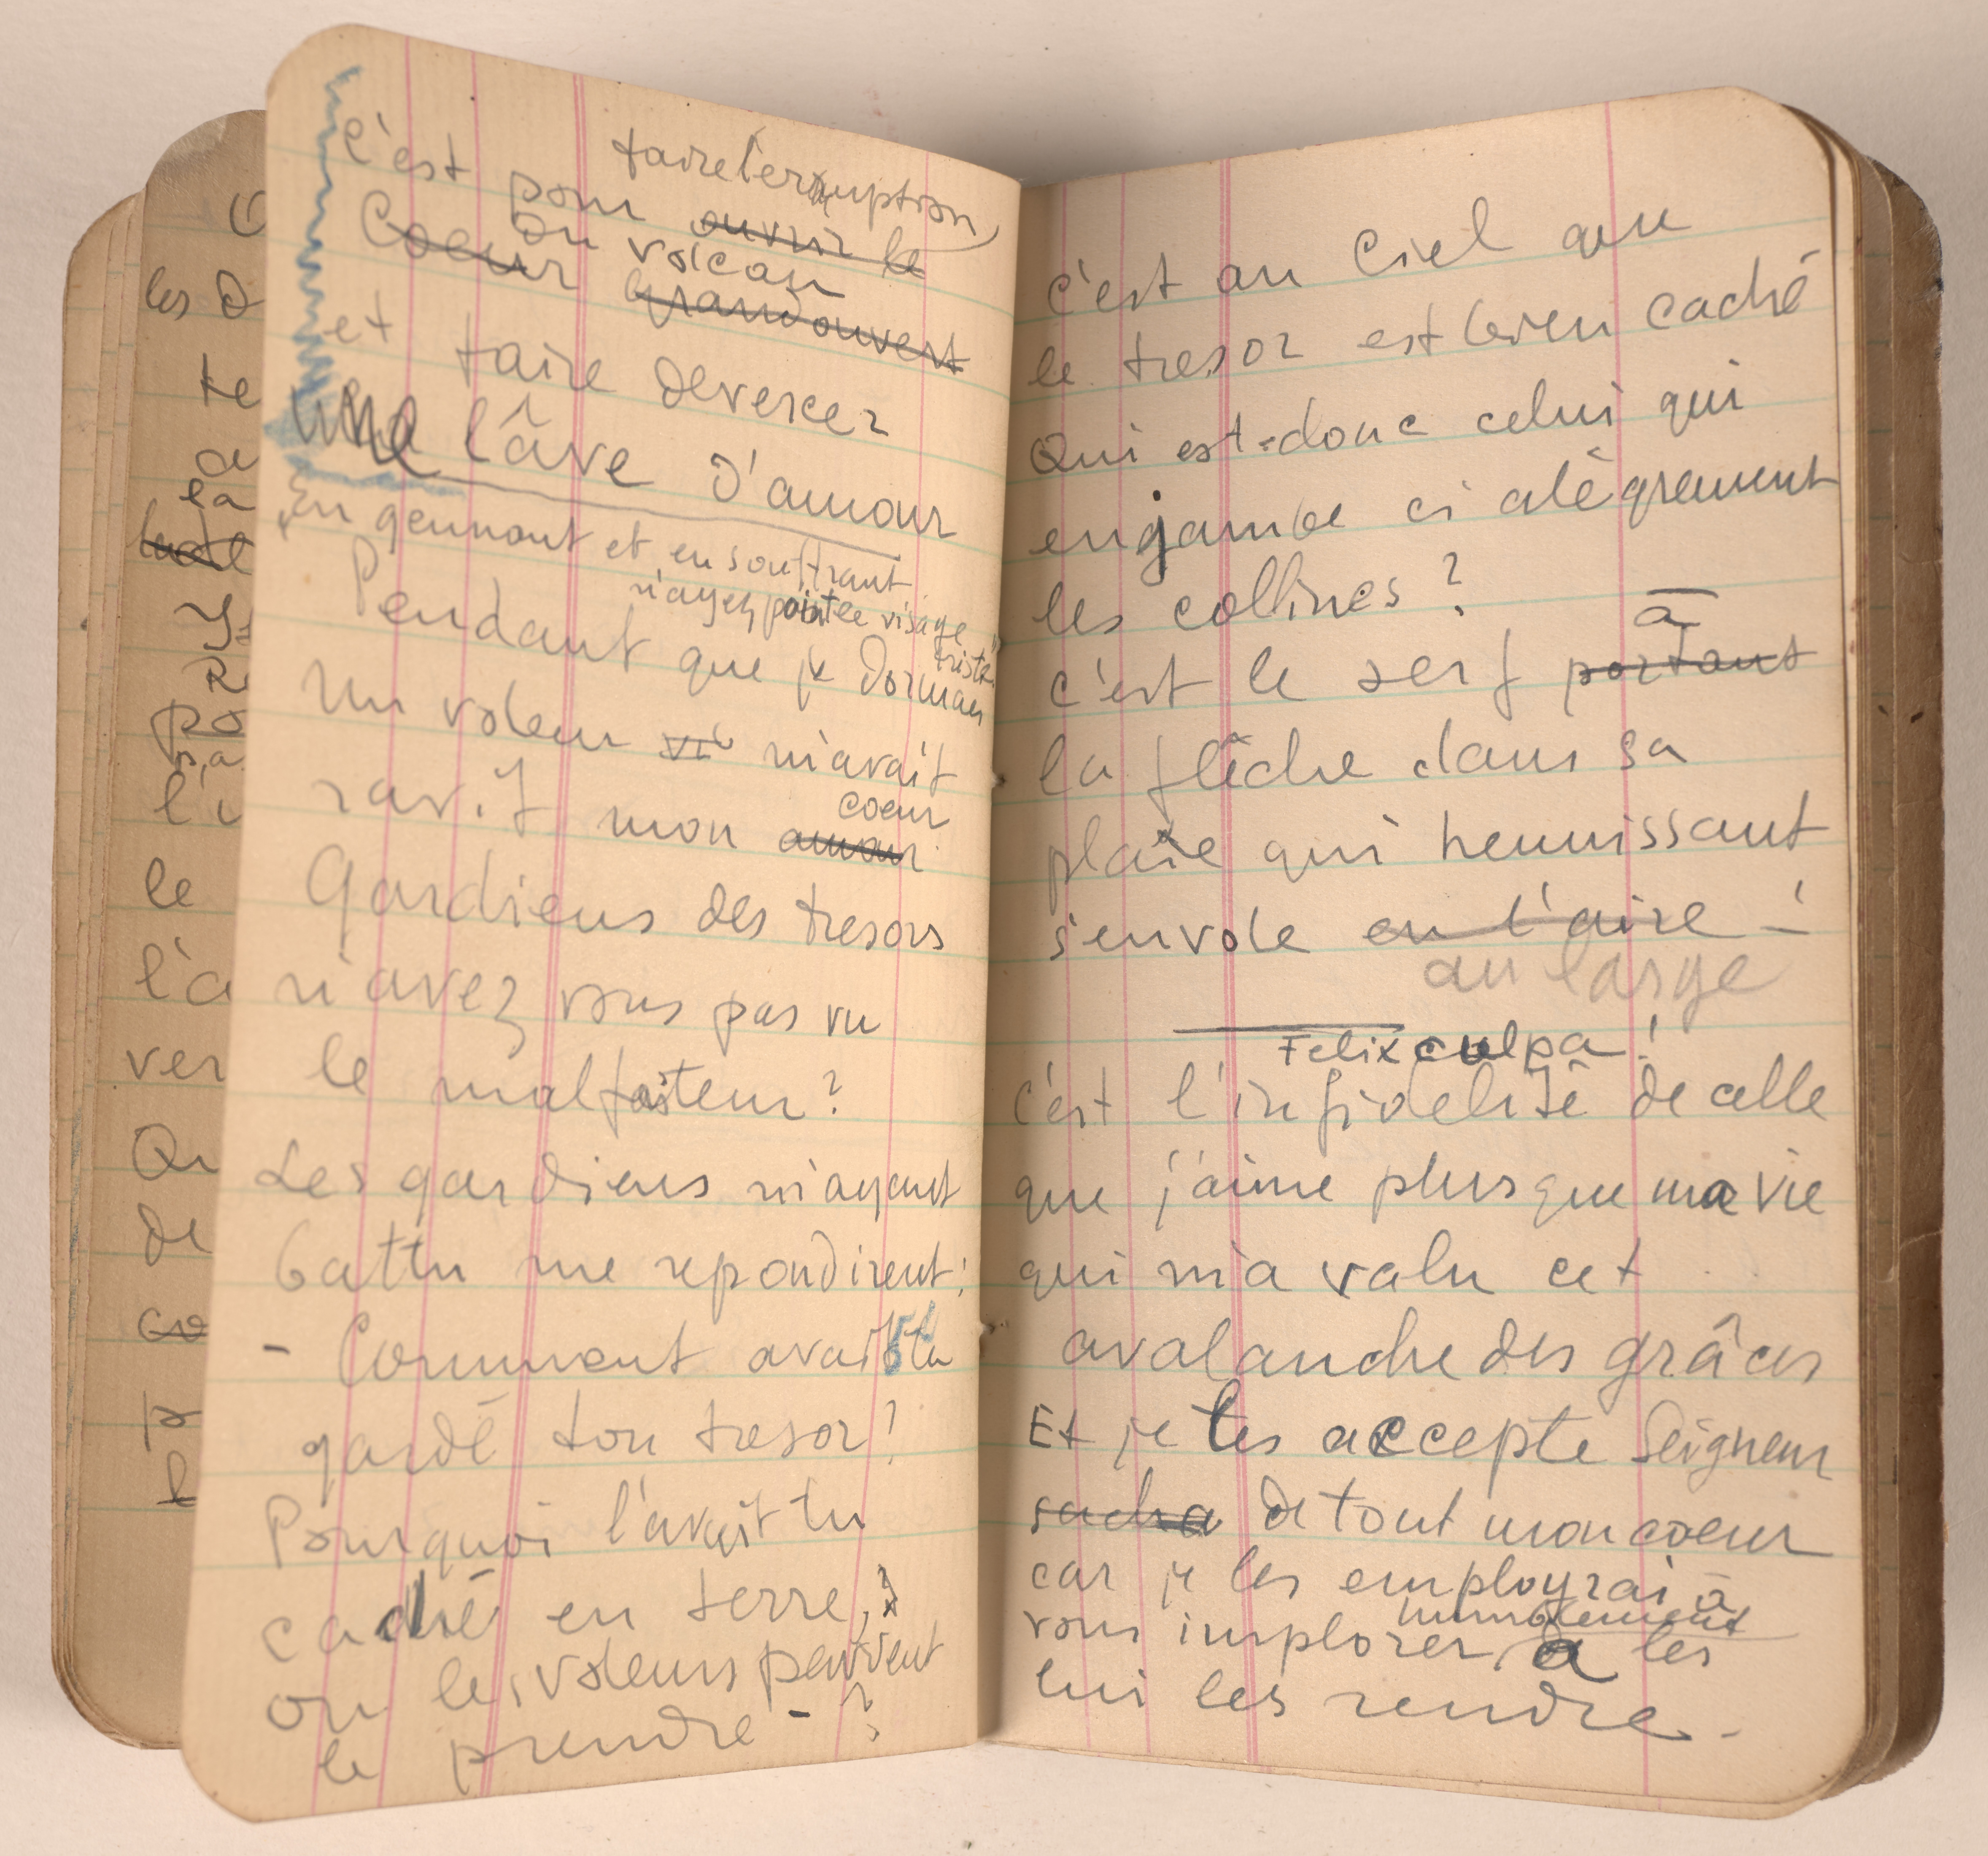 O
les D
te
a
la
Y
R
po
l'i
le
l'a
ver
Qu
de
co
p
l
faire l'eruption
c'est pour ouvrir le
Du volcan
Coeur grand ouvert
et faire deverser
une lâve d'amour
En gennant et en souffrant
n'ayez point le visage
triste
Pendant que je dormais
un voleur m'avait
ravit mon amour
coeur
Gardiens des tresors
n'avez vous pas vu
le malfaiteur?
Les gardiens m'ayant
battu me repondirent:
- Comment avait tu
gardé ton tresor?
Pourquoi l'avait tu
caché en terre,?
ou les voleurs peuvent
le prendre - ?
c'est au Ciel que
le tresor est bien caché
Qui est-donc celui qui
enjambe ci alègrement
les collines?
à
c'est le serf portant
la flêche dans sa
plaie qui hennissant
s'envole en l'aire - !
au large
Felix culpa!
c'est l'infidelité de celle
que j'aime plus que ma vie
qui m'a valu cet
avalanche des grâces
Et je les accepte Seigneur
sacha de tout mon coeur
car je les employrai à
humblement
vous implorer à les
lui les rendre.-